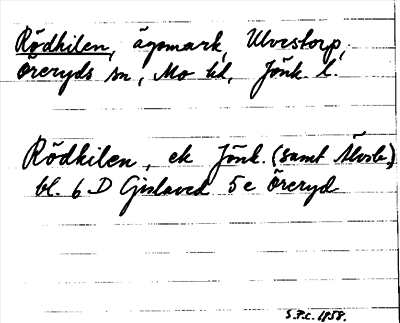 Rödkilen, ägomark, Ulvestorp,
Öreryds sn, Mo hd, Jönk. l.
Rödkilen, ek Jönk. (samt Älvsb.)
bl. 6 D Gislaved 5 e Öreryd
S.P.C. 1958.